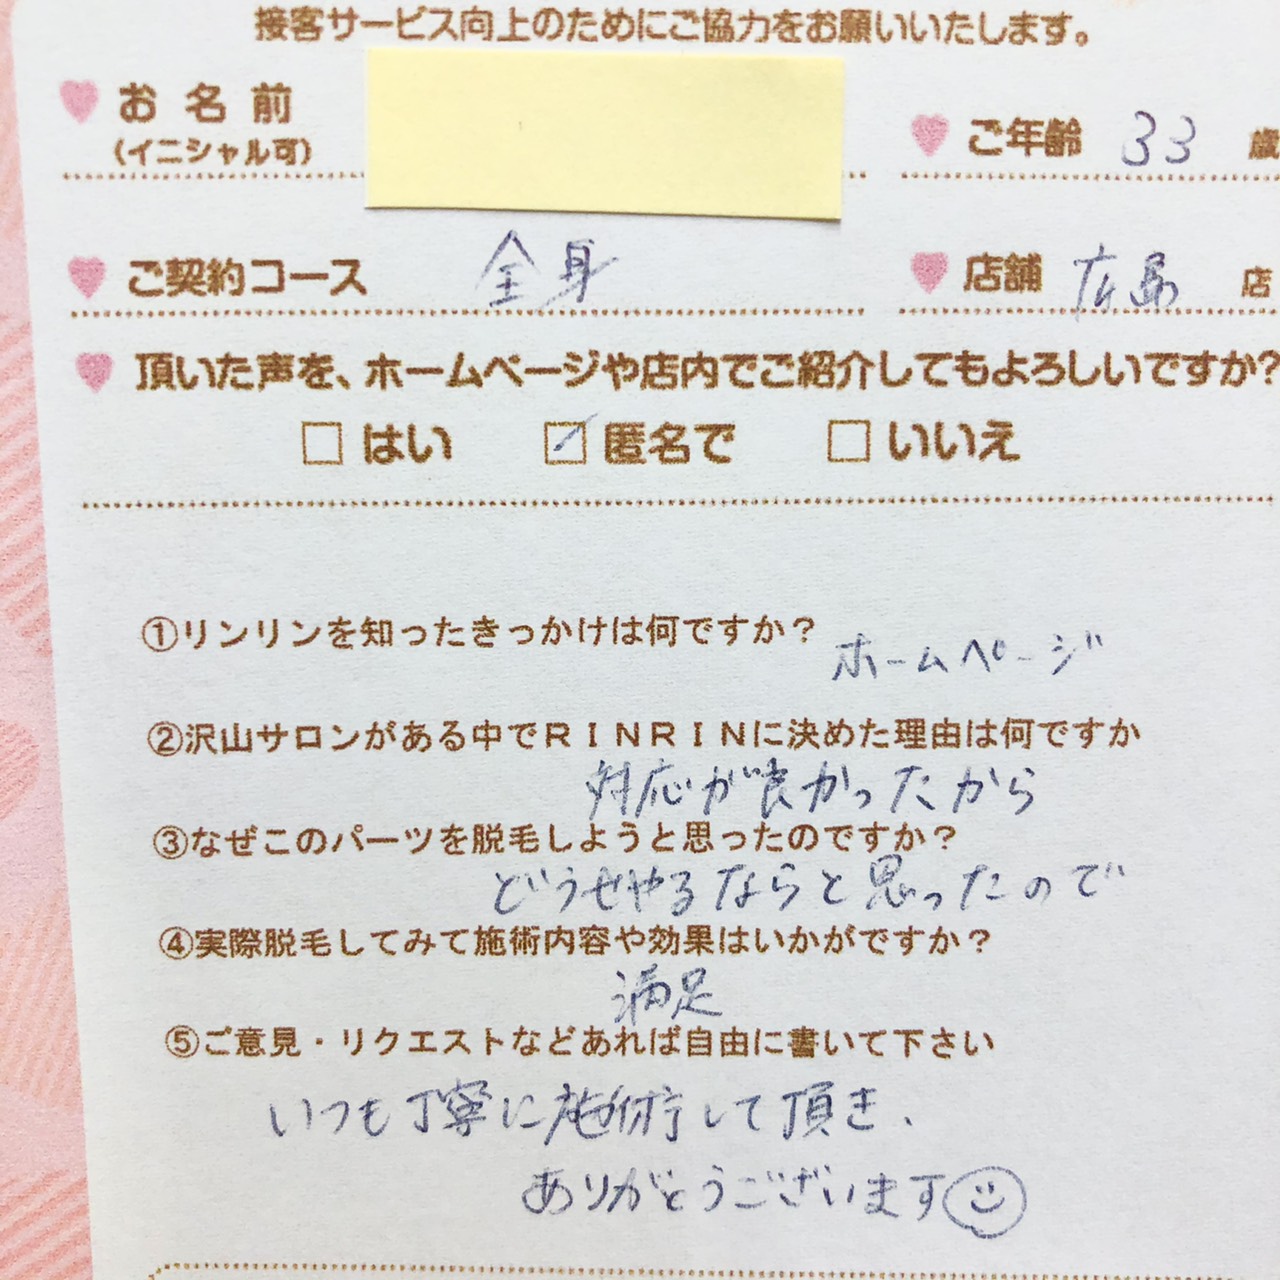 接客サービス向上のためにご協力をお願いいたします。
お名前
(イニシャル可)
ご年齢 33 歳
ご契約コース 全身
店舗 広島 店
頂いた声を、ホームページや店内でご紹介してもよろしいですか?
□ はい ☑ 匿名で □ いいえ
①リンリンを知ったきっかけは何ですか?
ホームページ
②沢山サロンがある中でRINRINに決めた理由は何ですか
対応が良かったから
③なぜこのパーツを脱毛しようと思ったのですか?
どうせやるならと思ったので
④実際脱毛してみて施術内容や効果はいかがですか?
満足
⑤ご意見・リクエストなどあれば自由に書いて下さい
いつも丁寧に施術して頂き、
ありがとうございます